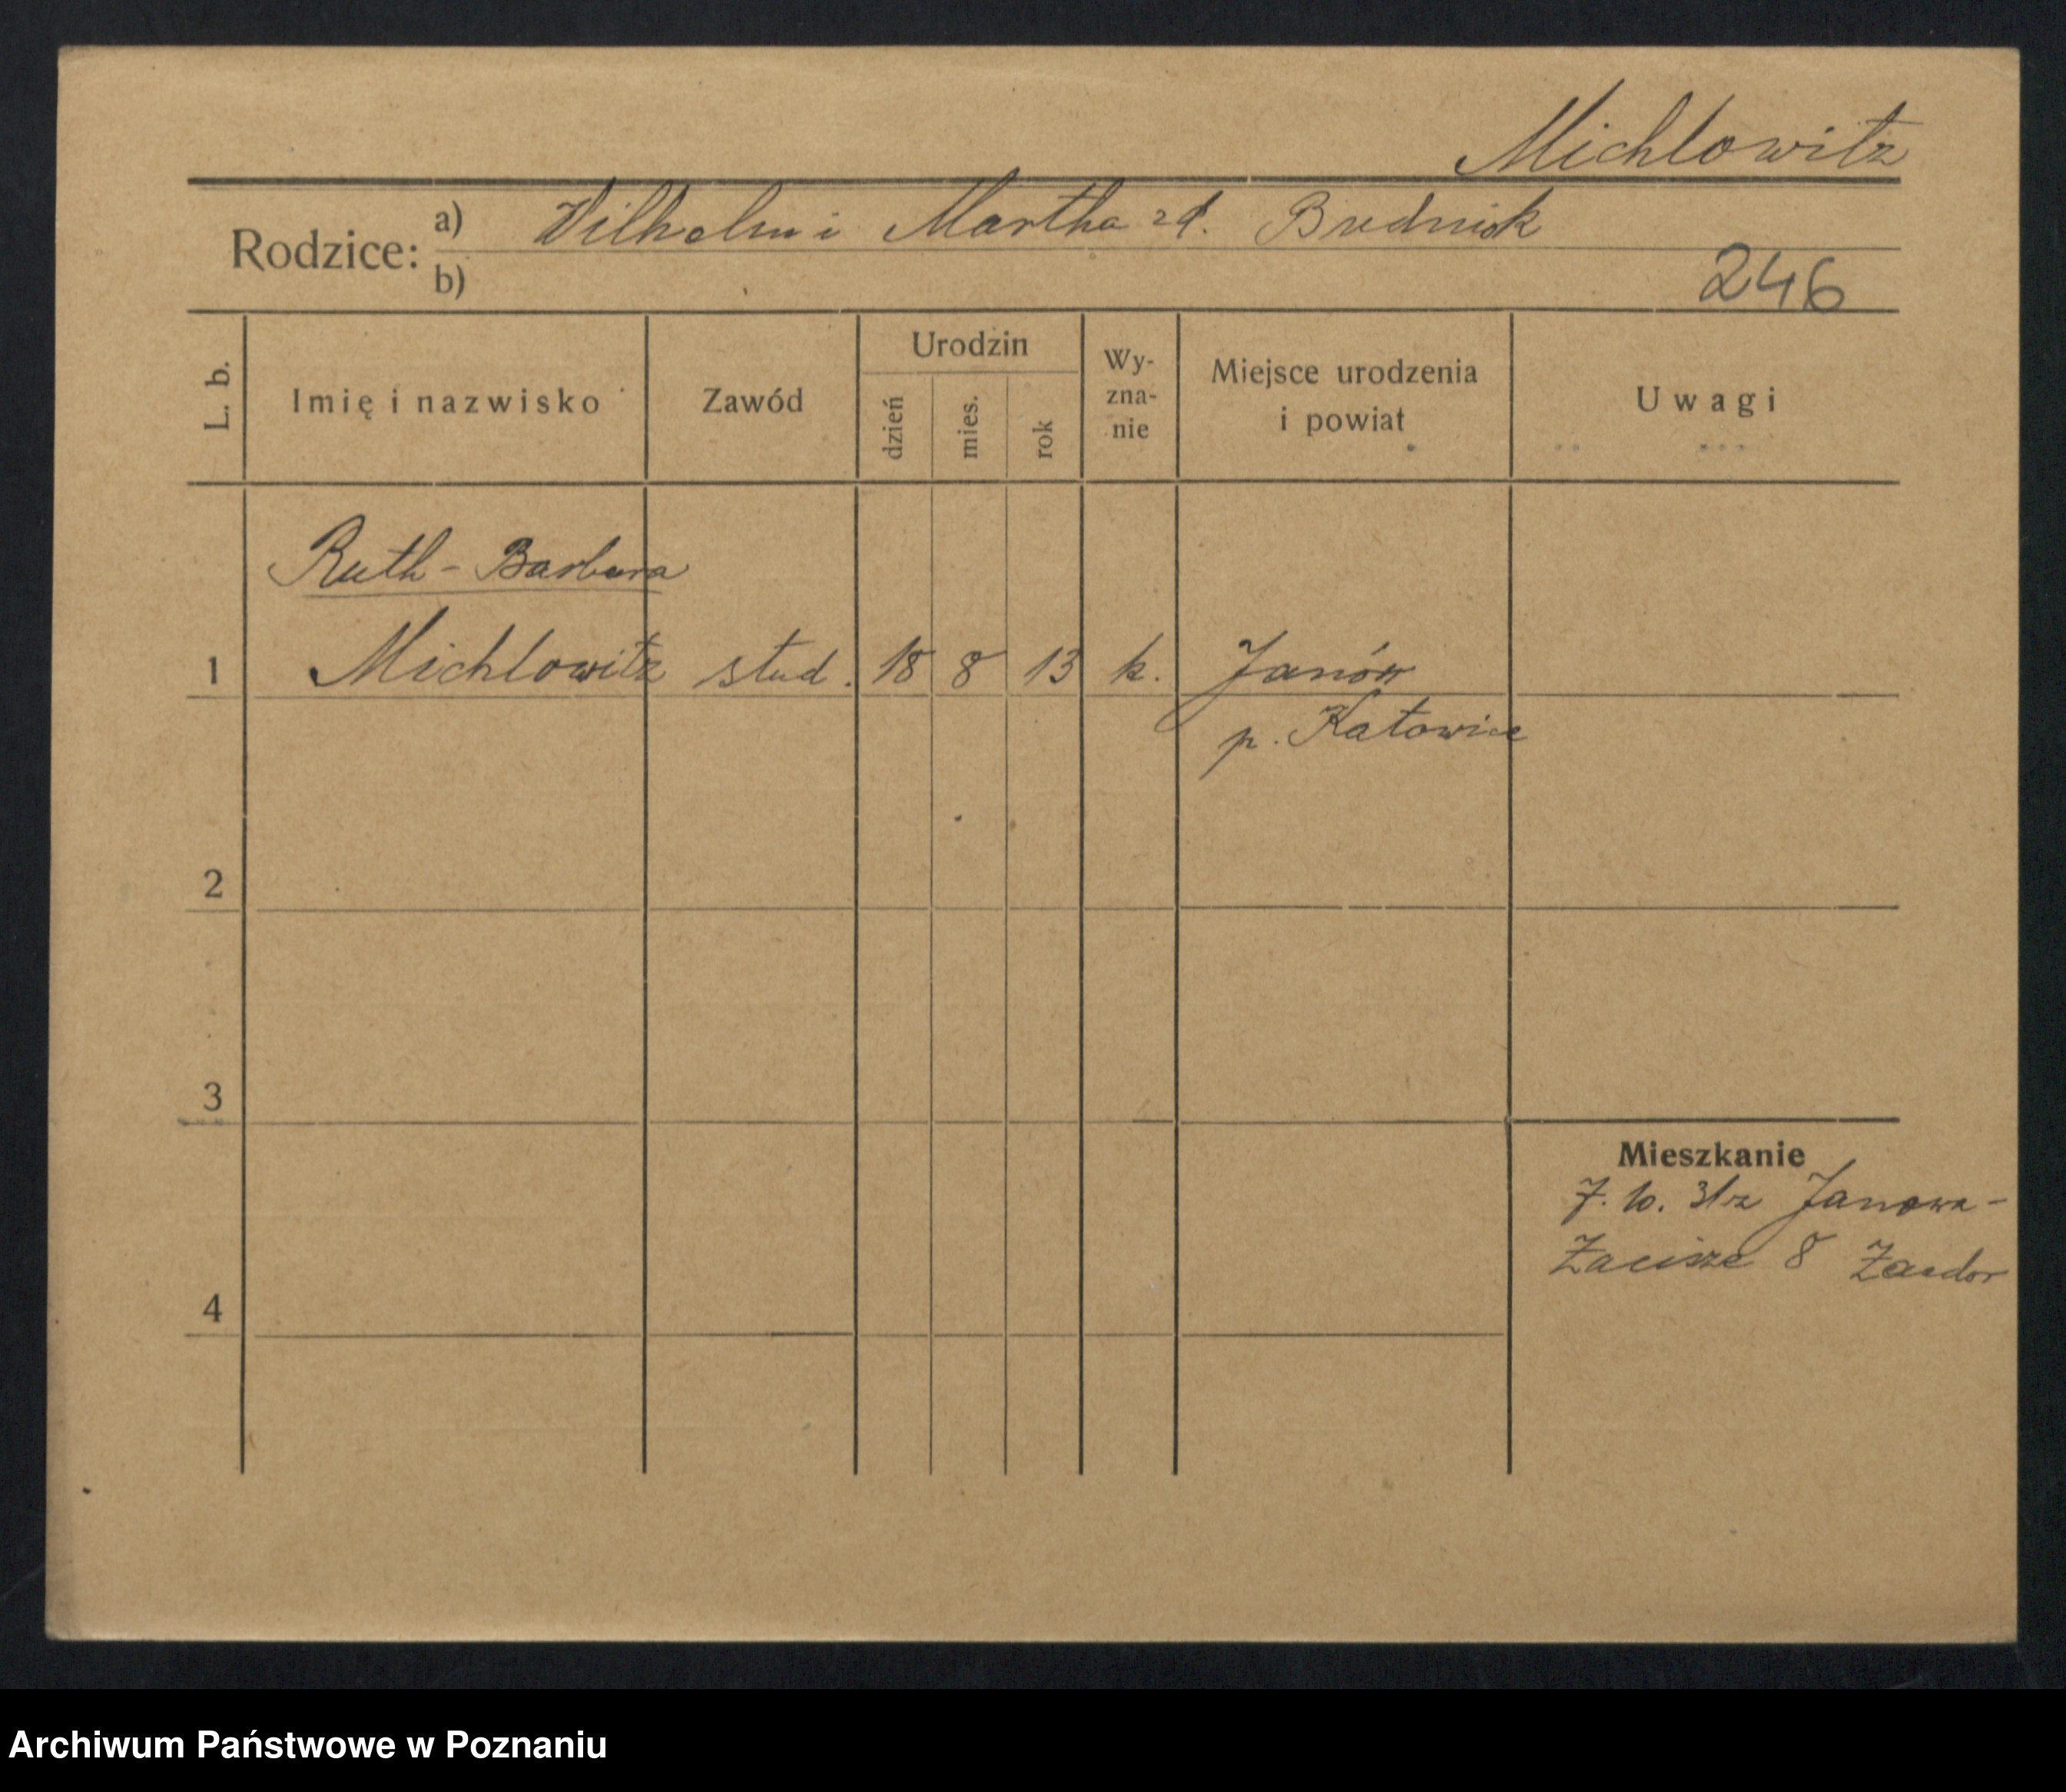 Michlowitz
Rodzice: a) Wilhelm i Martha zd. Brednick
b)
246
L. b. Imię i nazwisko Zawód Urodzin dzień mies. rok Wy-zna-nie Miejsce urodzenia i powiat Uwagi
Ruth-Barbara
1 Michlowitz stud. 18 8 13 k. Janów
p. Katowice
2
3
Mieszkanie
7. 10. 31 z Janowa-
Zacisze 8
4
Archiwum Państwowe w Poznaniu